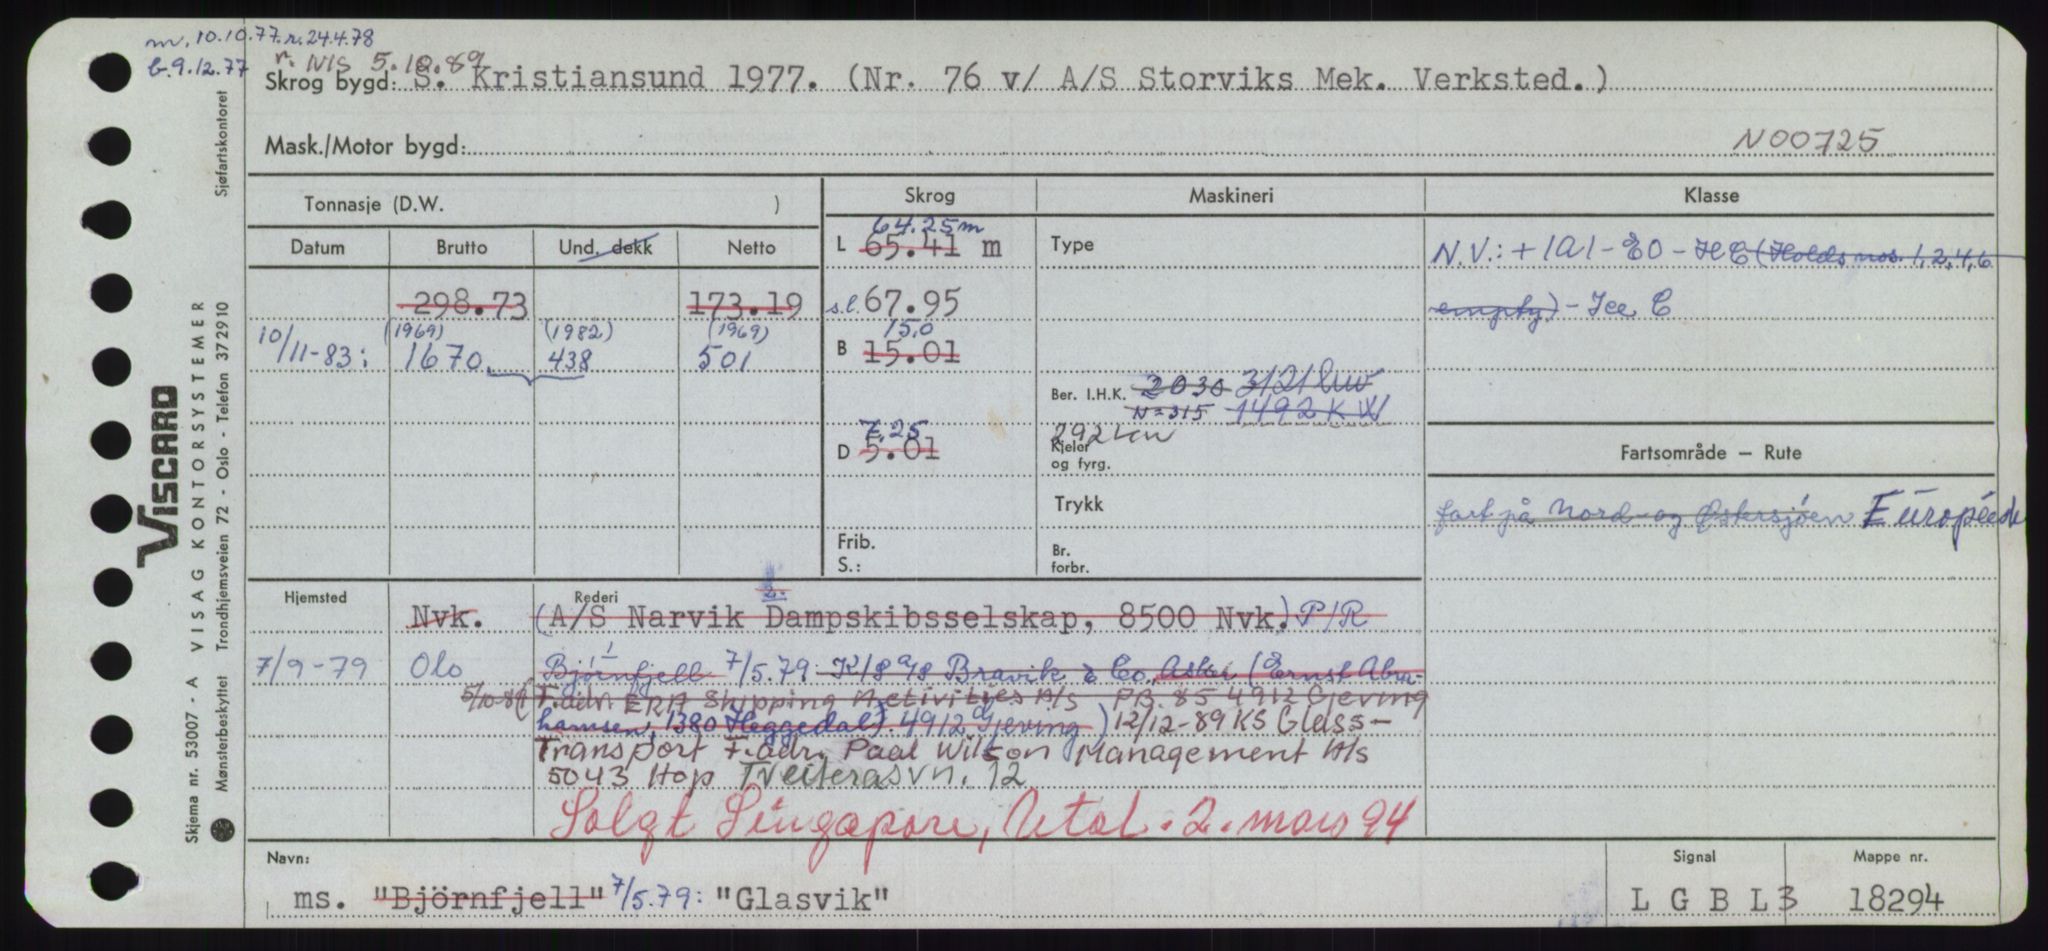 m. 10.10.77. r. 24.4.78
b. 9.12.77 r. NIS 5.10.89
Skrog bygd: S. Kristiansund 1977. (Nr. 76 v/ A/S Storviks Mek. Verksted.)
Mask./Motor bygd: N00725
Tonnasje (D.W. ) Skrog Maskineri Klasse
Datum Brutto Und. dekk Netto
64.25m
L 65.41 m
Type
N.V.: + 1A1 - E0 - HC (Holds nos. 1, 2, 4, 6
298.73 173.19
s.l. 67.95
empty) - Ice C
(1969) (1982) (1969)
10/11-83: 1670 438 501
15,0
B 15.01
Ber. I.H.K. 2030 3121 kw
N=315 1492 KW
292 kw
7,25
D 5.01
Kjeler
og fyrg.
Fartsområde — Rute
Trykk
fart på Nord- og Østersjøen Européisk
Frib.
S.:
Br.
forbr.
Hjemsted Rederi
Nvk. (A/S Narvik Dampskibsselskap, 8500 Nvk.) P/R
7/9-79 Olo Björnfjell 7/5.79. K/S A/S Bravik & Co. Asker (Ernst Abra-
5/10-89 (F.adr. ERA Shipping Activities A/S PB. 85 4912 Gjeving
hamsen, 1380 Heggedal). 4912 Gjeving) 12/12-89 KS Glass-
Transport F.adr. Paal Wilson Management A/s
5043 Hop Tveiteråsvn. 12
Solgt Singapore, Utal. 2. mars 94
Navn: Signal Mappe nr.
ms. "Björnfjell" 7/5.79: "Glasvik" L G B L 3 18294
Skjema nr. 53007 - A VISAG KONTORSYSTEMER Sjøfartskontoret
Mønsterbeskyttet Trondhjemsveien 72 - Oslo - Telefon 372910
VISCARD